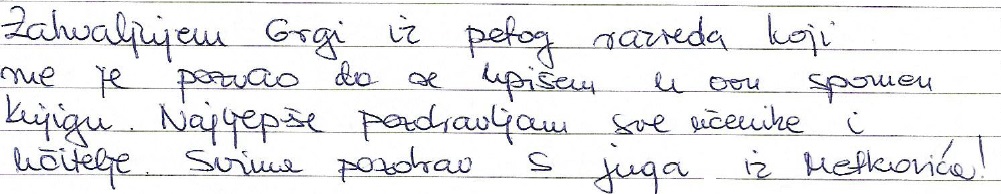 Zahvaljujem Grgi iz petog razreda koji
me je pozvao da se upišem u ovu spomen
knjigu. Najljepše pozdravljam sve učenike i
učitelje. Svima pozdrav s juga iz Metkovića!